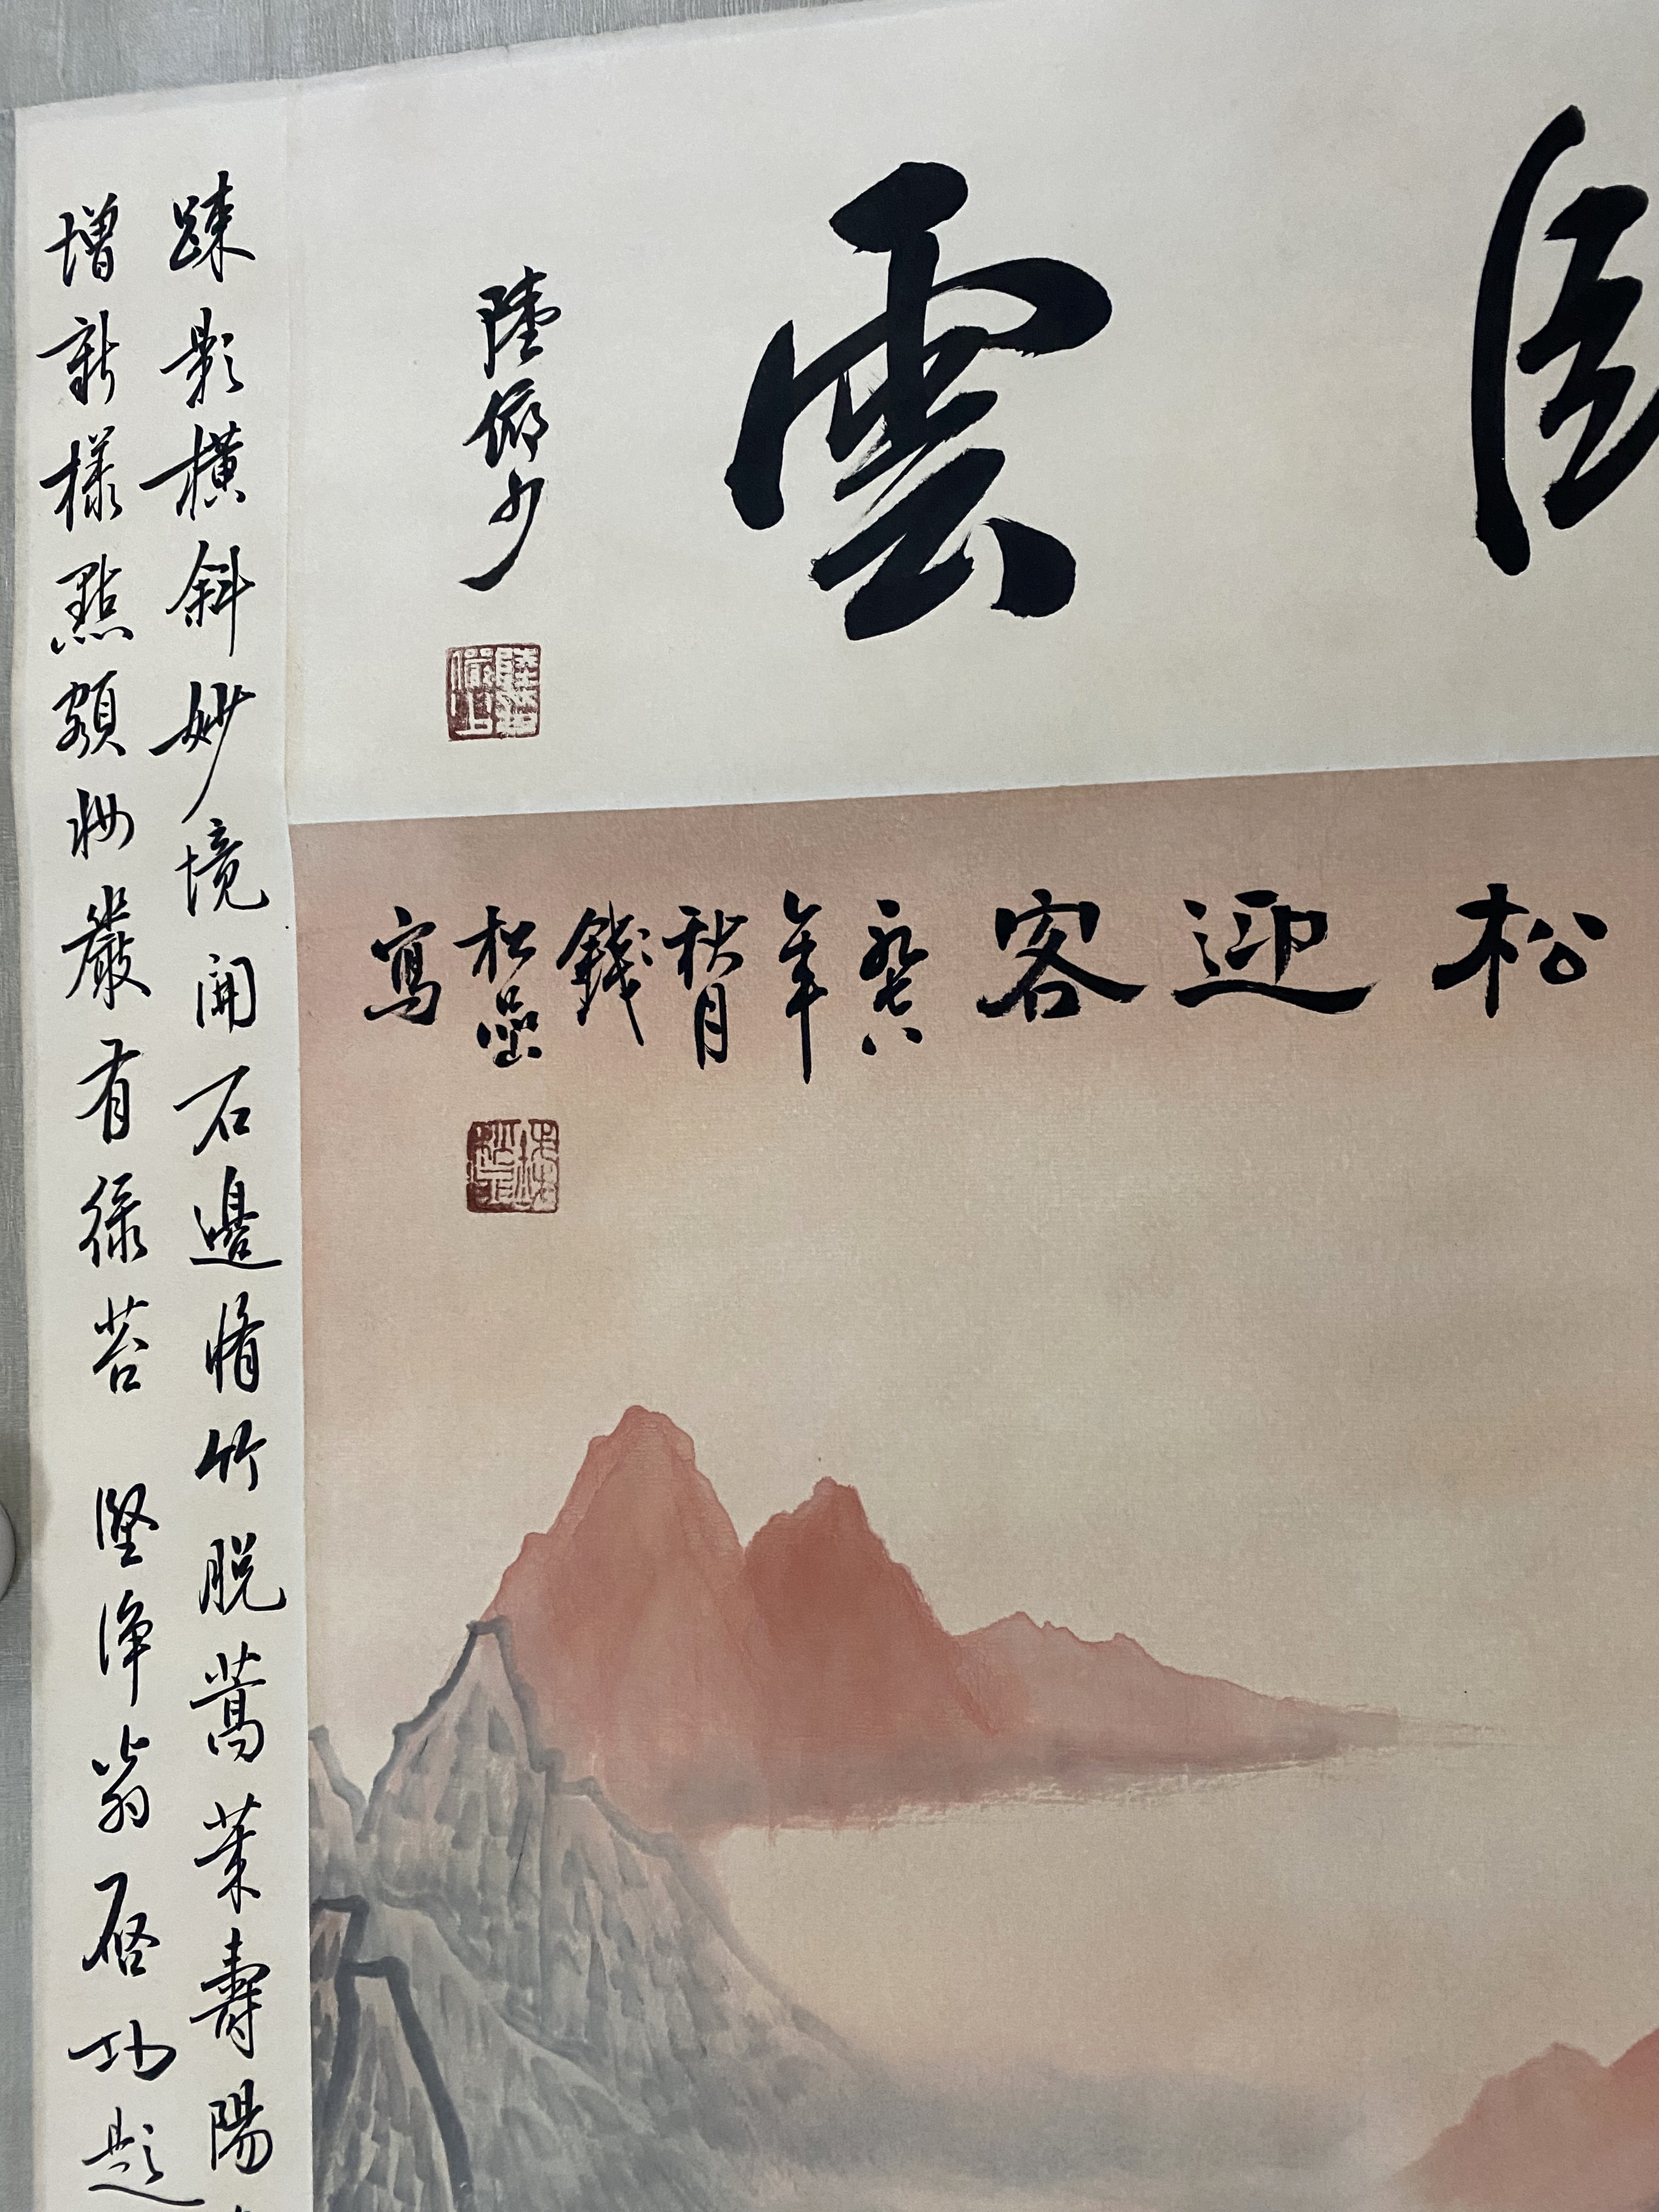 雲
陸儼少
松迎客
一九七八年秋月錢松喦寫
踈影橫斜妙境開石邊脩竹脫蒿萊壽陽
增新樣點額妝嚴有綠苔 堅淨翁啓功題